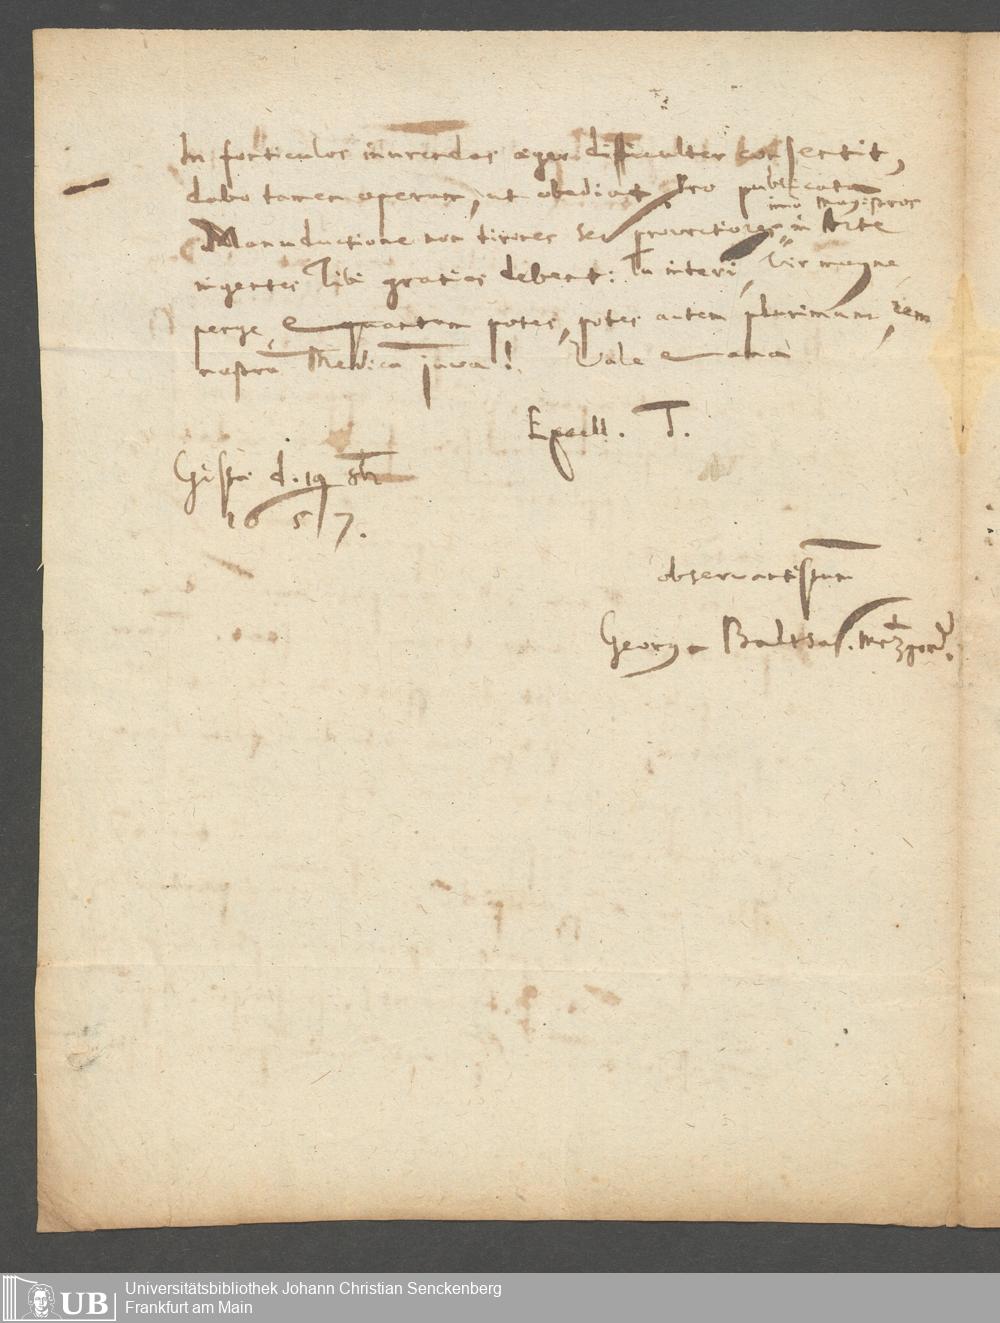 In fonticulos inurendos aeger difficulter consentit,
dabo tamen operam, ut obediat. Pro publicata
imo Magistros
Manuductione non tirones sed provectiores in Arte
ingentes Tibi gratias debent: Tu interi, Vir magne
perge, & quantum potes, potes autem plurimum, rem
nostrā Medicā juva! Vale & ama
Excell. T.
Gissae d. 19 8br
1657.
observantissimum
Georg Baltsas. Mezger.
Universitätsbibliothek Johann Christian Senckenberg
Frankfurt am Main
UB